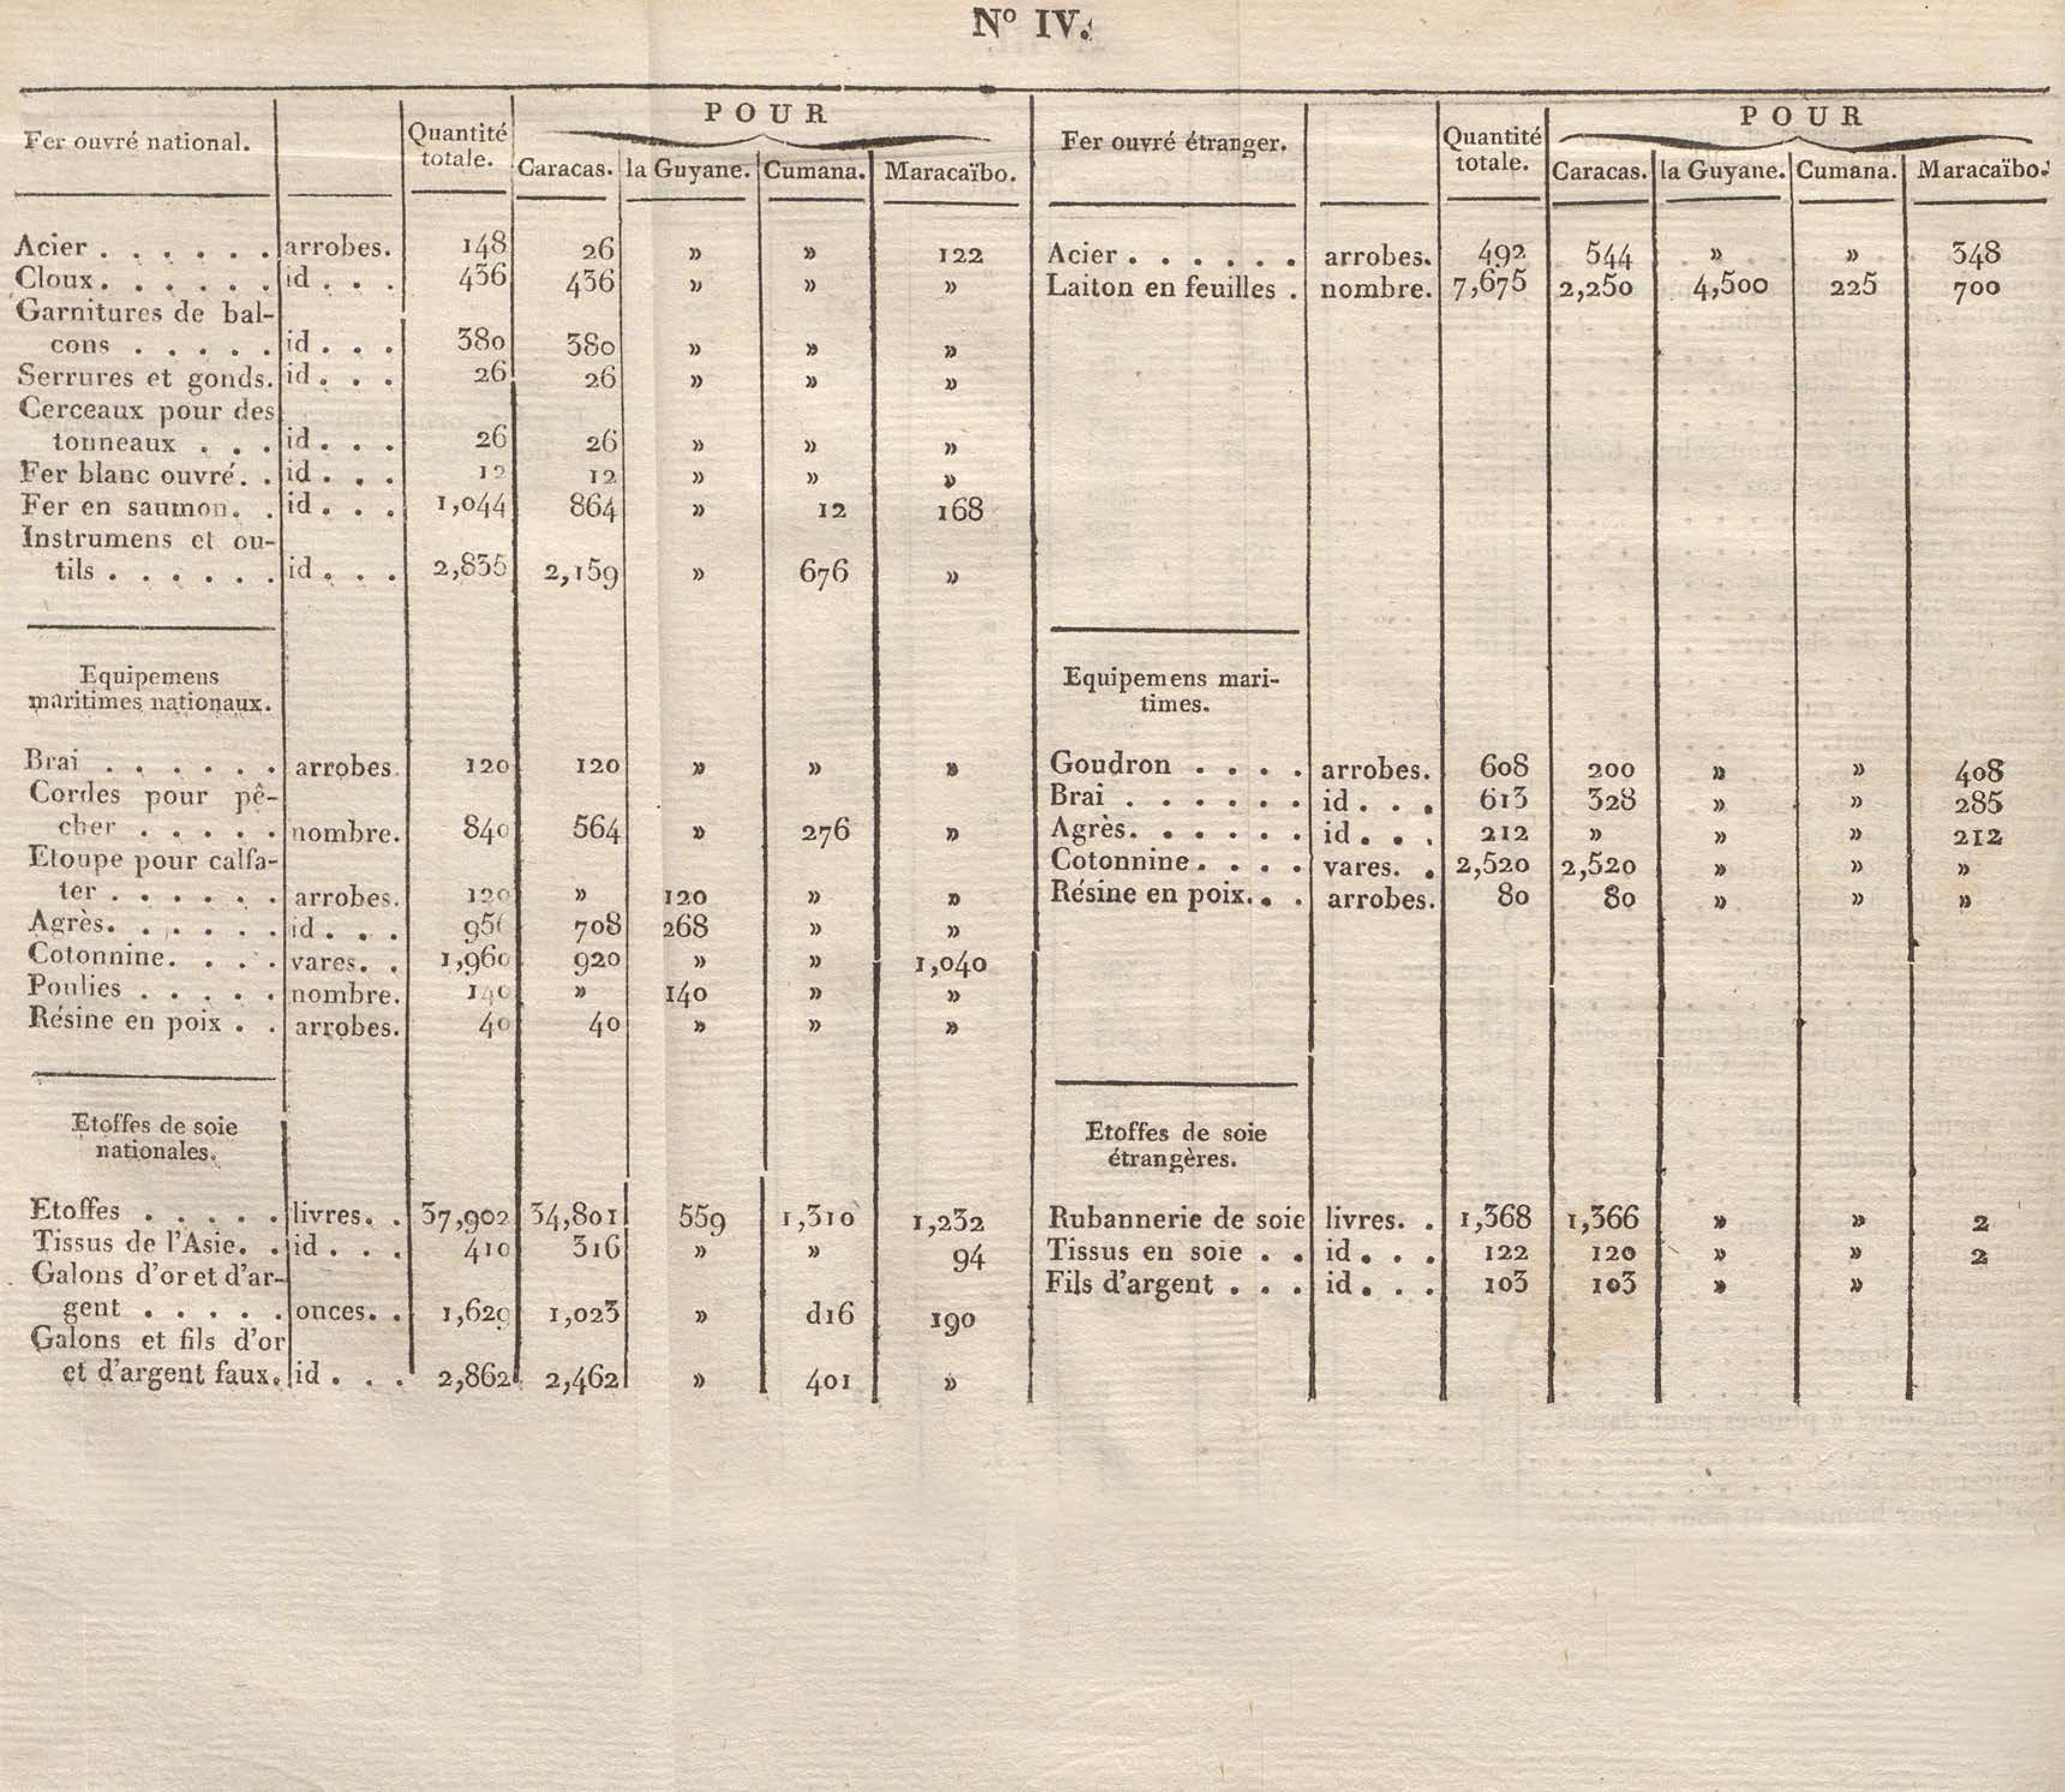 N° IV.
POUR
Fer ouvré national. Quantité totale. Caracas. la Guyane. Cumana. Maracaïbo.
Acier . . . . . . arrobes. 148 26 » » 122
Cloux. . . . . . . id . . . 436 436 » » »
Garnitures de bal-
cons . . . . . id . . . 380 380 » » »
Serrures et gonds. id . . . 26 26 » » »
Cerceaux pour des
tonneaux . . . id . . . 26 26 » » »
Fer blanc ouvré. . id . . . 12 12 » » »
Fer en saumon. . id . . . 1,044 864 » 12 168
Instrumens et ou-
tils . . . . . . id . . . 2,835 2,159 » 676 »
Equipemens
maritimes nationaux.
Brai . . . . . . arrobes. 120 120 » » »
Cordes pour pê-
cher . . . . . nombre. 840 564 » 276 »
Etoupe pour calfa-
ter . . . . . . arrobes. 120 » 120 » »
Agrès. . . . . . id . . . 708 268 » »
Cotonnine. . . . vares. . 1,960 920 » » 1,040
Poulies . . . . . nombre. 140 » 140 » »
Résine en poix . . arrobes. 40 40 » » »
Etoffes de soie
nationales.
Etoffes . . . . . livres. . 37,902 34,801 559 1,310 1,232
Tissus de l'Asie. . id . . . 410 316 » » 94
Galons d'or et d'ar-
gent . . . . . onces. . 1,629 1,023 » d16 190
Galons et fils d'or
et d'argent faux. id . . . 2,862 2,462 » 401 »
POUR
Fer ouvré étranger. Quantité totale. Caracas. la Guyane. Cumana. Maracaïbo.
Acier . . . . . . arrobes. 492 544 » » 348
Laiton en feuilles . nombre. 7,675 2,250 4,500 225 700
Equipemens mari-
times.
Goudron . . . . arrobes. 608 200 » » 408
Brai . . . . . . id . . . 613 328 » » 285
Agrès. . . . . . id . . . 212 » » » 212
Cotonnine. . . . vares. . 2,520 2,520 » » »
Résine en poix. . . arrobes. 80 80 » » »
Etoffes de soie
étrangères.
Rubannerie de soie livres. . 1,368 1,366 » » 2
Tissus en soie . . id . . . 122 120 » » 2
Fils d'argent . . . id . . . 103 103 » »